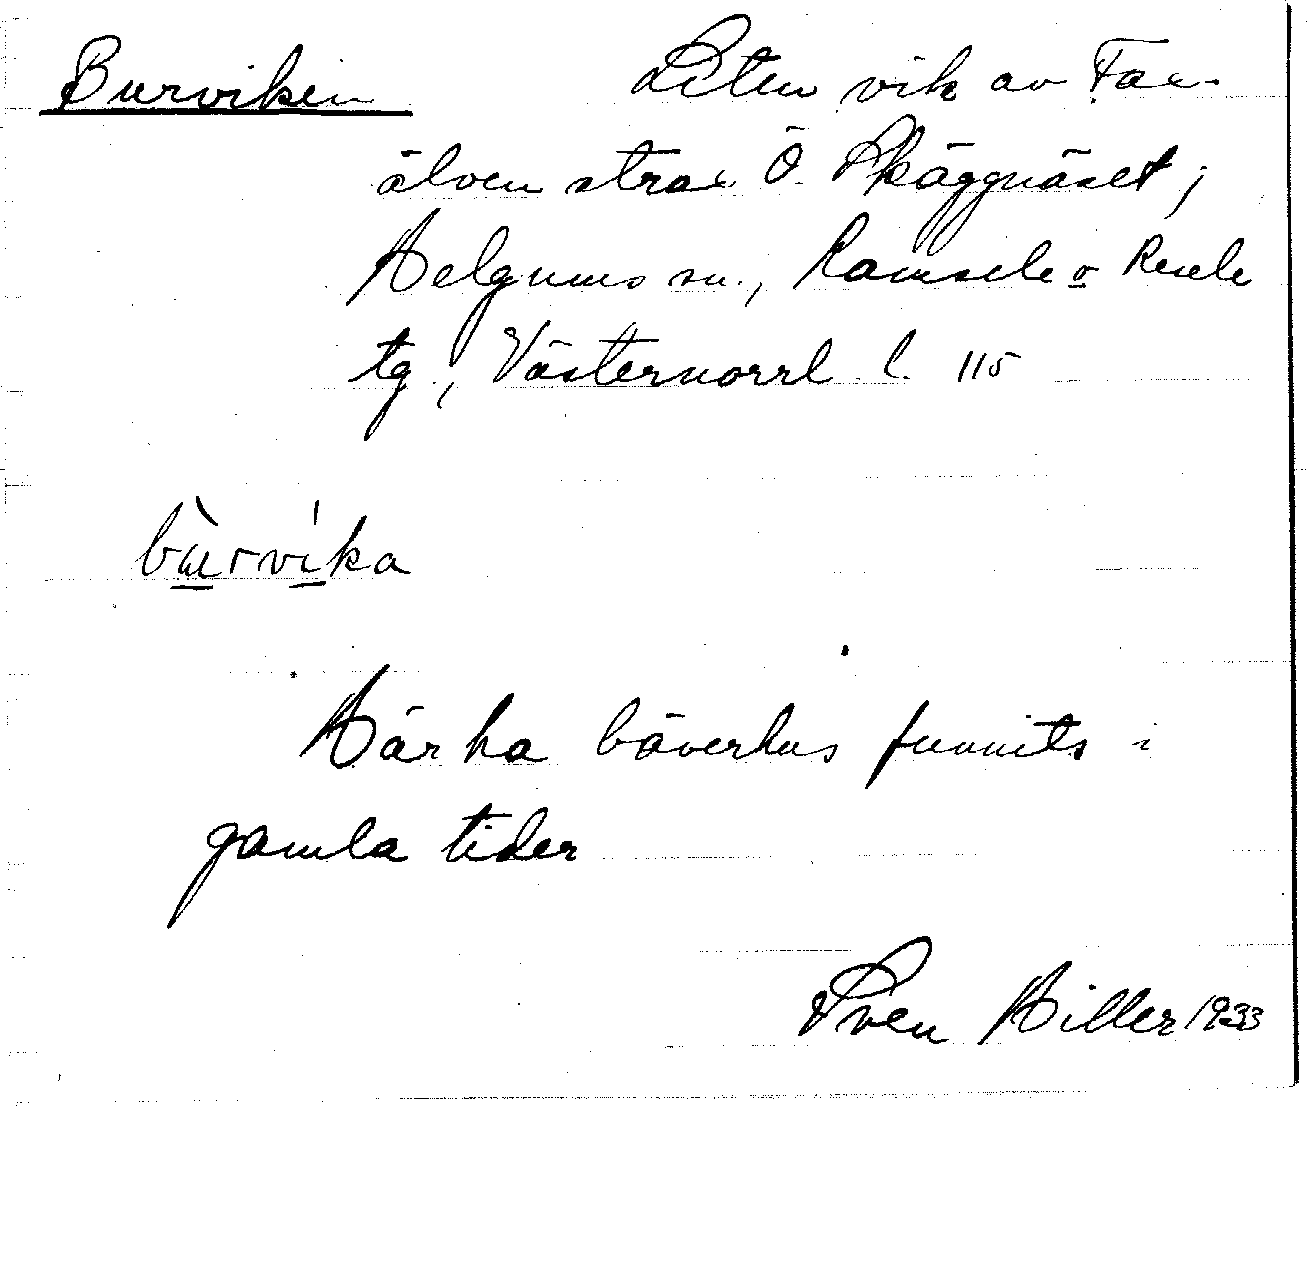 Burviken Liten vik av Fax-
älven strax Ö. Skäggnäset;
Helgums sn., Ramsele o Resele
tg, Västernorrl l. 115
bùrvíka
Här ha bäverhus funnits i
gamla tider
Sven Hiller 1933